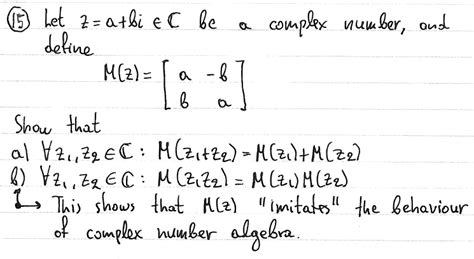 ⑮ Let z = a+bi ∈ ℂ be a complex number, and
define
M(z) = [ a -b
b a ]
Show that
a) ∀z₁, z₂ ∈ ℂ : M(z₁+z₂) = M(z₁)+M(z₂)
b) ∀z₁, z₂ ∈ ℂ : M(z₁z₂) = M(z₁)M(z₂)
↳ This shows that M(z) "imitates" the behaviour
of complex number algebra.